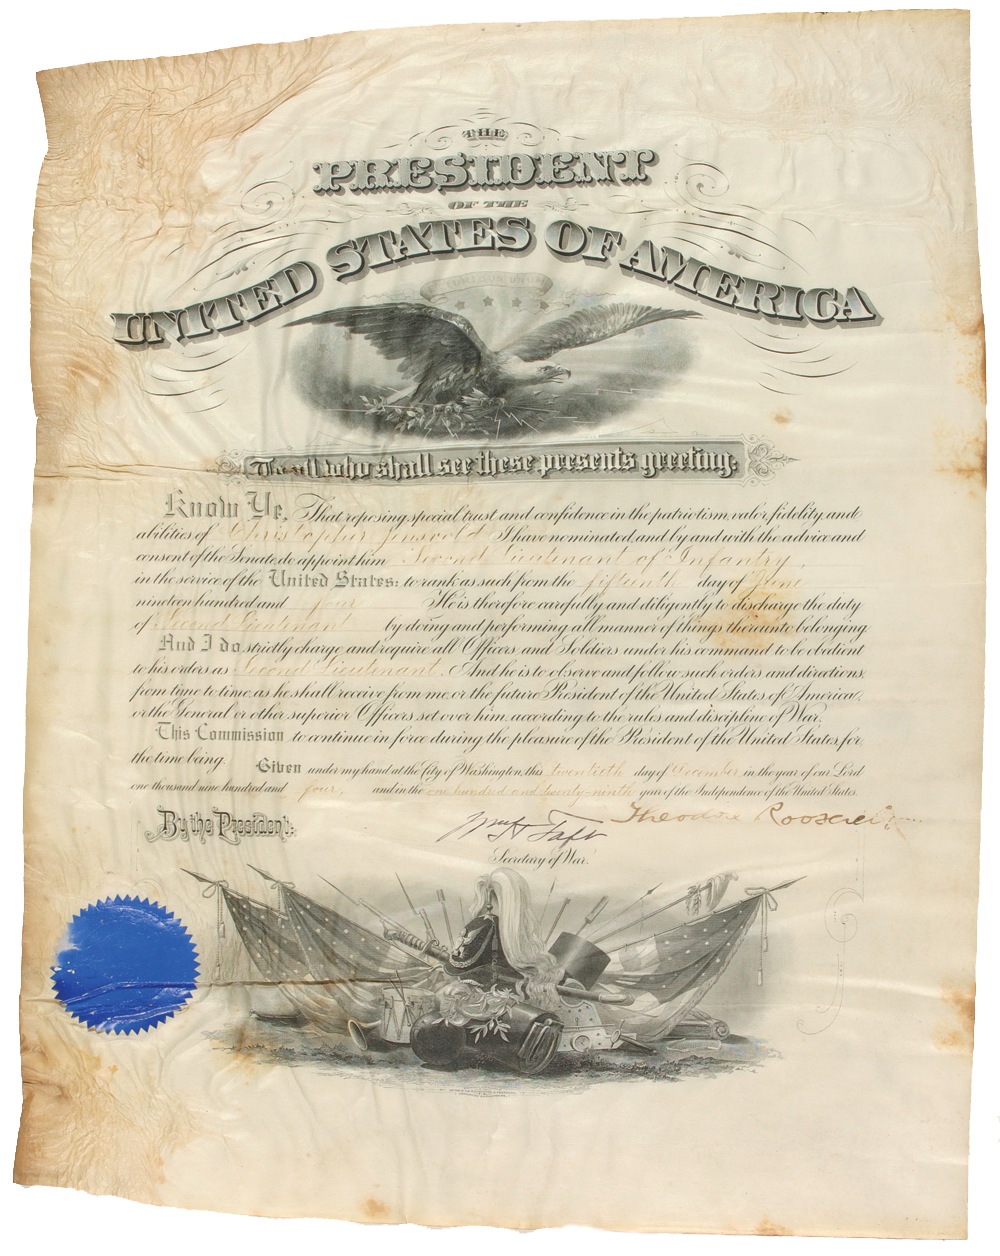 THE
PRESIDENT
OF THE
UNITED STATES OF AMERICA
To all who shall see these presents greeting:
Know Ye, That reposing special trust and confidence in the patriotism, valor, fidelity and
abilities of Christopher Jensvold I have nominated, and by and with the advice and
consent of the Senate do appoint him Second Lieutenant of Infantry,
in the service of the United States: to rank as such from the fifteenth day of June
nineteen hundred and four He is therefore carefully and diligently to discharge the duty
of Second Lieutenant by doing and performing all manner of things thereunto belonging.
And I do strictly charge, and require all Officers and Soldiers under his command to be obedient
to his orders as Second Lieutenant. And he is to observe and follow such orders and directions,
from time to time, as he shall receive from me, or the future President of the United States of America,
or the General or other superior Officers set over him, according to the rules and discipline of War.
This Commission to continue in force during the pleasure of the President of the United States, for
the time being.
Given under my hand at the City of Washington, this twentieth day of December in the year of our Lord
one thousand nine hundred and four, and in the one hundred and twenty-ninth year of the Independence of the United States.
By the President:
Theodore Roosevelt
Wm H Taft
Secretary of War.